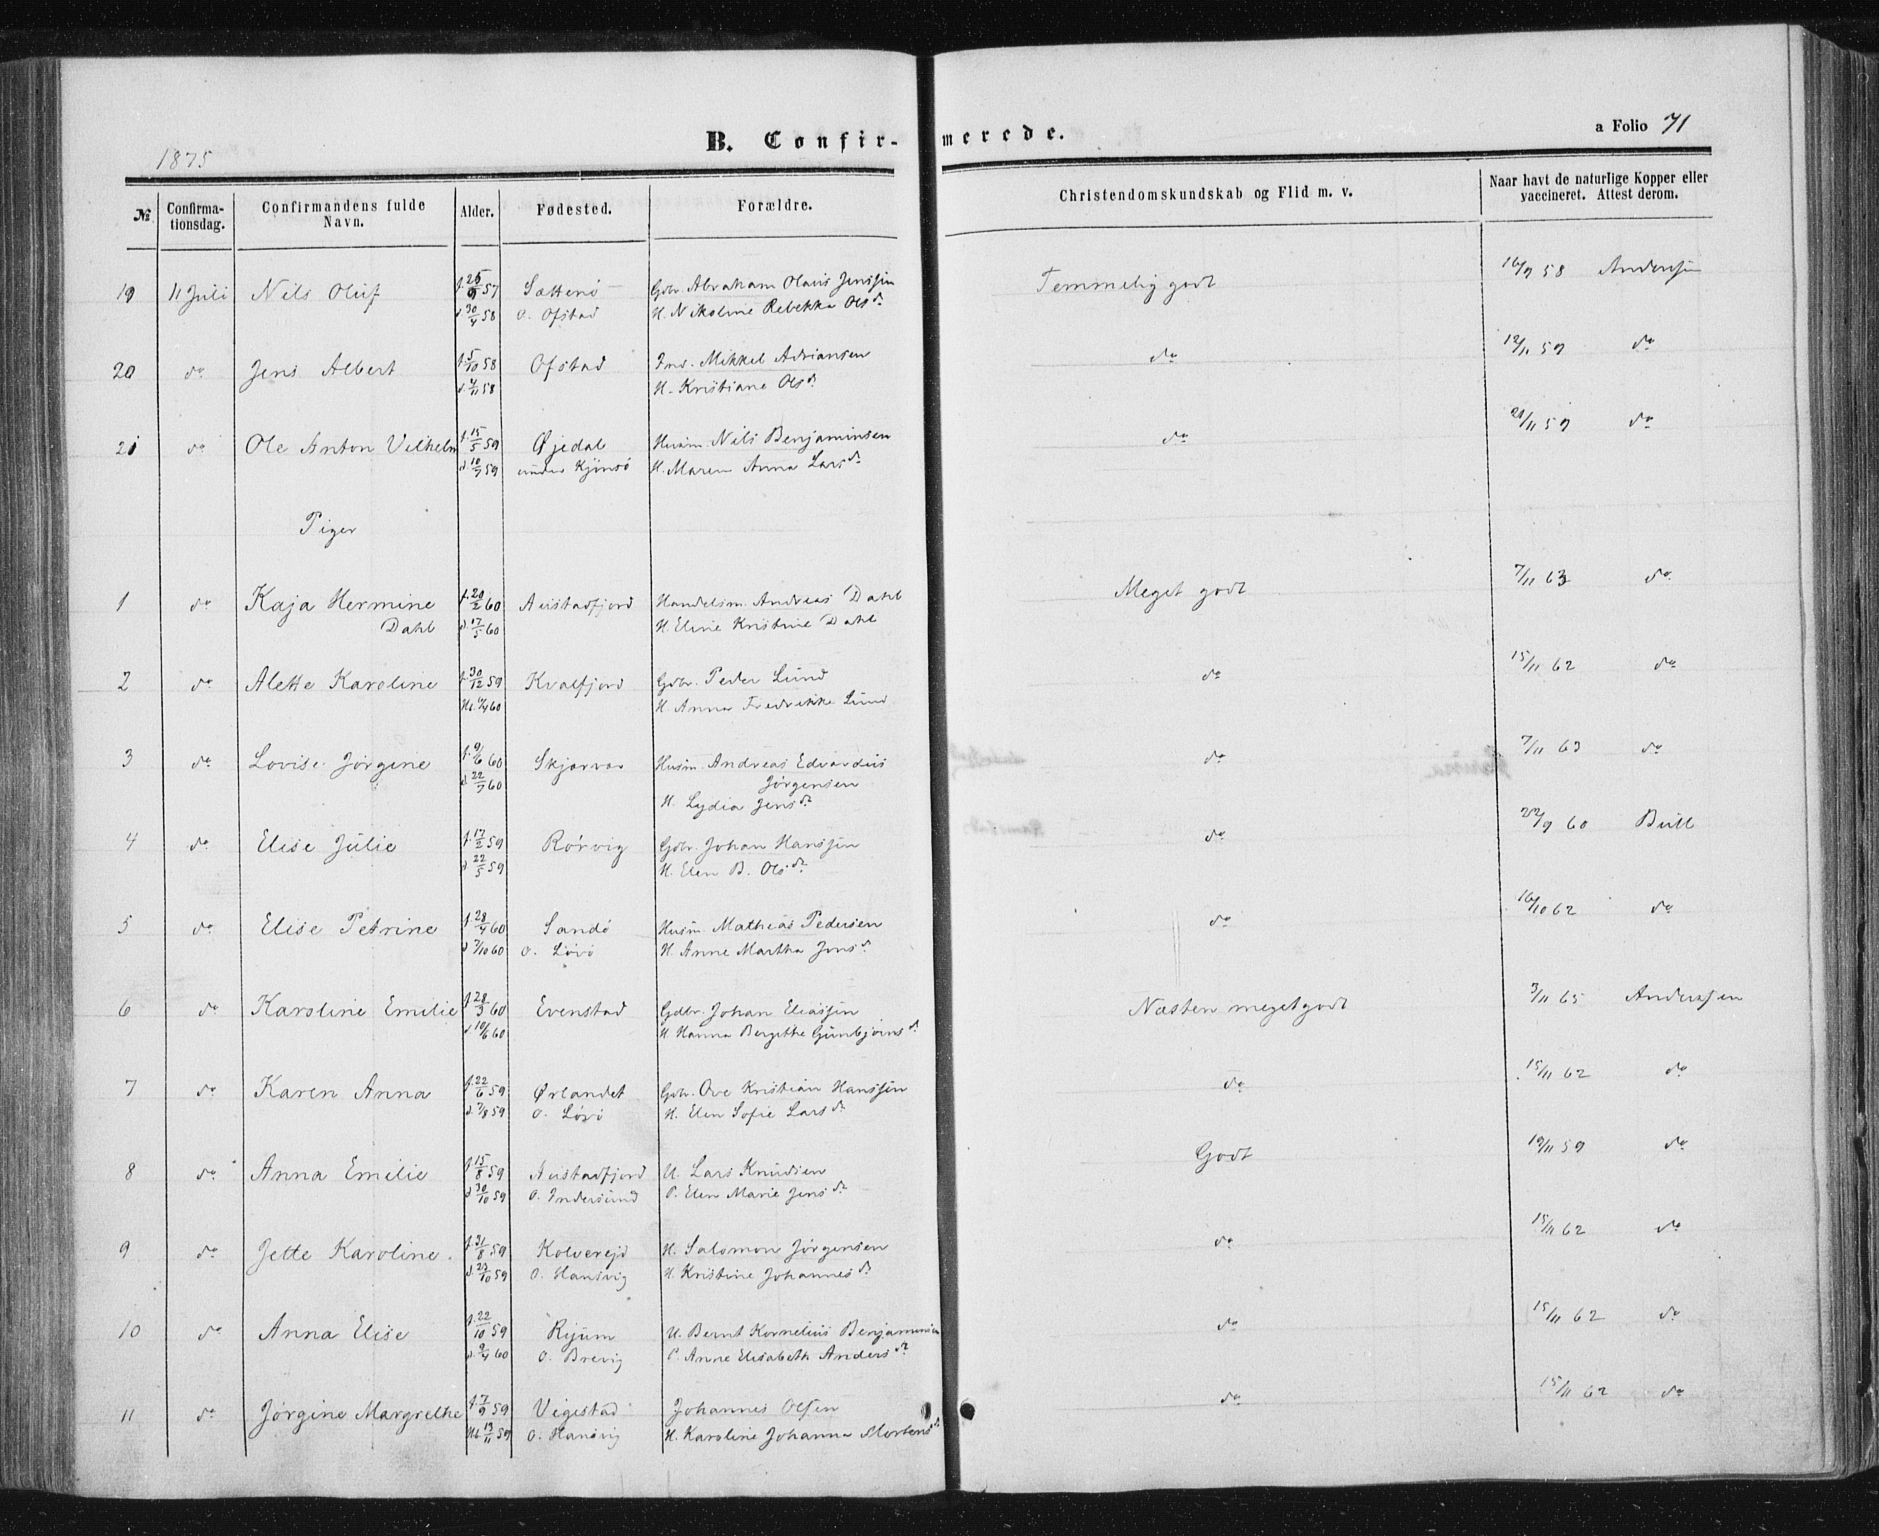 B. Confirmerede.
a Folio 71
1875
№ Confirmationsdag. Confirmandens fulde Navn. Alder. Fødested. Forældre. Christendomskundskab og Flid m. v. Naar havt de naturlige Kopper eller vaccineret. Attest derom.
19 11 Juli Nils Oluf f. 25/9 57 Sætternø Gdbr. Abraham Olaus Jenssen Temmelig godt 16/9 58 Anderssen
d. 30/4 58 O. Ofstad H. Nikoline Rebekka Olsdr.
20 do Jens Albert f. 5/10 58 Ofstad Ind. Mikkel Adriansen do 12/11 59 do
d. 7/11 58 H. Kristiane Olsdr.
21 do Ole Anton Vilhelm f. 15/5 59 Øjedal Husm. Nils Benjaminsen do 21/11 59 do
d. 10/7 59 under Kjønsø H. Maren Anna Larsdr.
Piger
1 do Kaja Hermine f. 20/2 60 Austadfjord Handelsm. Andreas Dahl Meget godt 7/11 63 do
Dahl d. 17/5 60 H. Eline Kristine Dahl
2 do Alette Karoline f. 30/12 59 Kvalfjord Gdbr. Peder Lund do 15/11 62 do
H. Anna Fredrikke Lund
3 do Lovise Jørgine f. 9/6 60 Skjærvær Husm. Andreas Edvardus do 7/11 63 do
d. 22/7 60 Jørgensen
H. Lydia Jensdr.
4 do Elise Julie f. 17/2 59 Rørvig Gdbr. Johan Hanssen do 22/9 60 Bull
d. 22/5 59 H. Elen B. Olsdr.
5 do Elise Petrine f. 28/4 60 Sandø Husm. Mathias Pedersen do 16/10 62 do
d. 7/10 60 O. Løvø H. Anne Martha Jonsdr.
6 do Karoline Emilie f. 28/3 60 Evenstad Gdbr. Johan Eliassen Næsten meget godt 3/11 65 Anderssen
d. 10/6 60 H. Hanna Bergithe Gunbjørnsdr.
7 do Karen Anna f. 22/6 59 Ørlandet Gdbr. Ove Kristian Hanssen do 15/11 62 do
d. 7/8 59 O. Løvø H. Elen Sofie Larsdr.
8 do Anna Emilie f. 15/8 59 Austadfjord U. Lars Knudsen Godt 19/11 59 do
d. 30/10 59 O. Indersund P. Elen Marie Jensdr.
9 do Jette Karoline f. 31/8 59 Kolvereid H. Salomon Jørgensen do 15/11 62 do
d. 23/10 59 O. Hansvig H. Kristine Johannesdr.
10 do Anna Elise f. 22/10 59 Ryum U. Bernt Kornelius Benjaminsen do 15/11 62 do
d. 9/4 60 O. Brevig P. Anne Elisabeth Andersdr.
11 do Jørgine Margrethe f. 7/9 59 Vigestad Johannes Olsen do 15/11 62 do
Hd. 13/11 59 O. Hansvig H. Karoline Johanna Mortensdr.